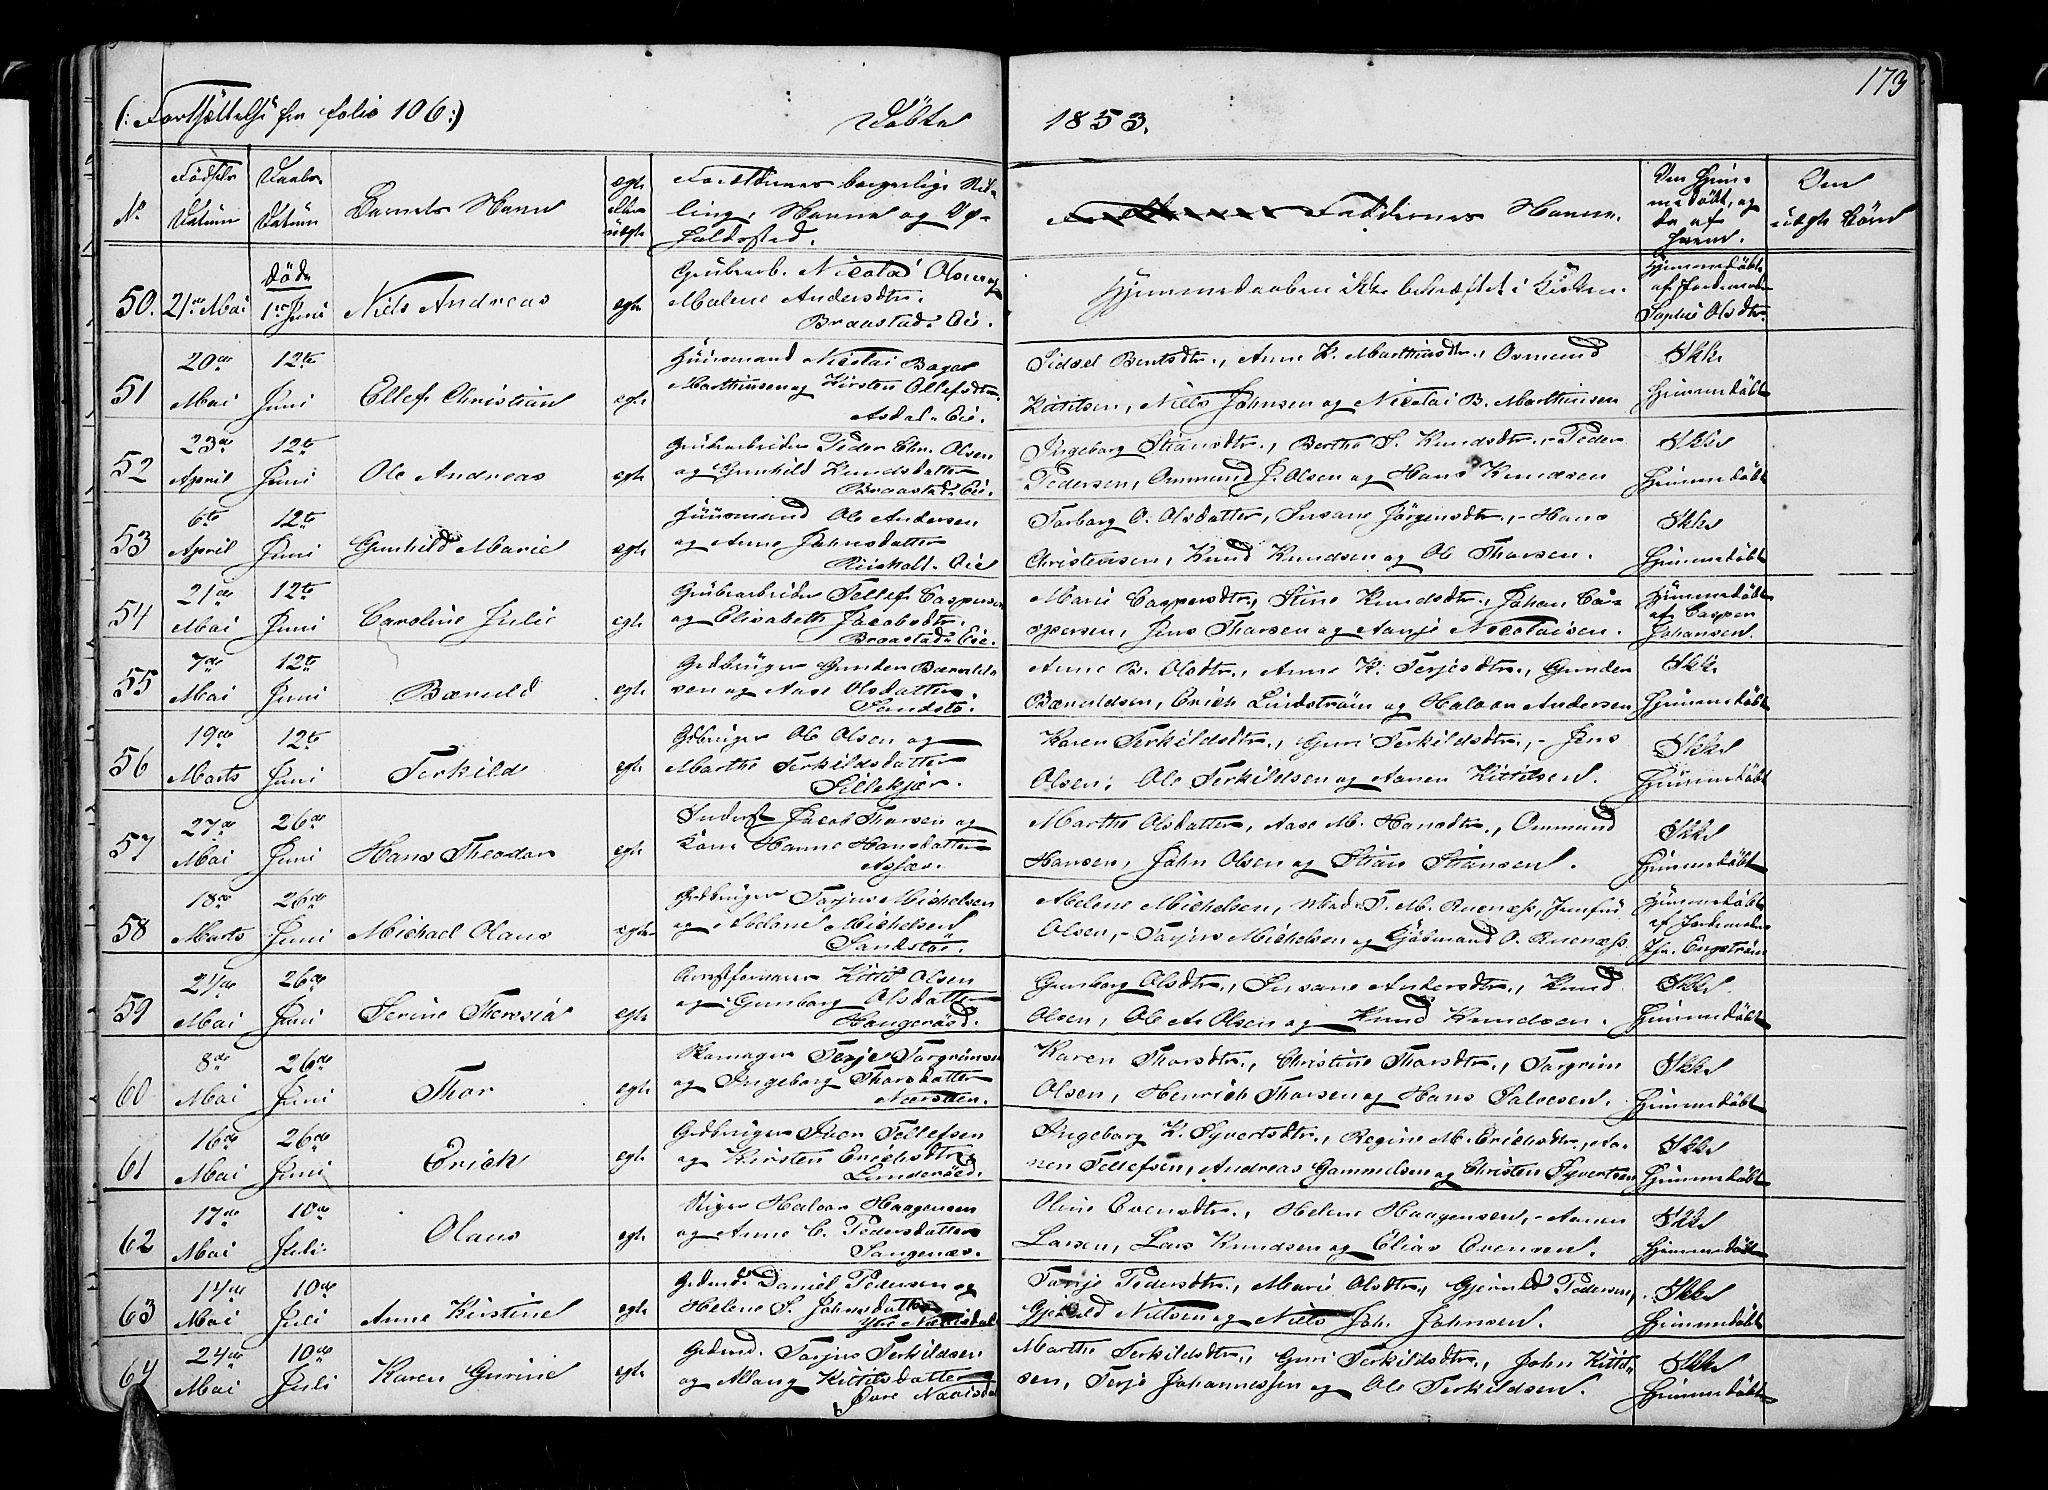 173
(: Fortsættelse fra folio 106 :) Döbte 1853.
No Fødsels Datum Daabs Datum Barnets Navn egte eller uegte Forældrenes borgerlige Stilling, Navne og Opholdssted. Faddernes Navne. Om hjemmedöbt, og da af hvem. Om uægte Börn
50. 21de Mai döde 1ste Juni Niels Andreas egte Grubearb. Nicolai Olsen og
Malene Andersdtr.
Braastad-Eie. Hjemmedaaben ikke bekræftet i Kirken. Hjemmedöbt af Jordemoder Sophie Olsdtr.
51 20de Mai 12te Juni Ellef Christian egte Huusmand Nicolai Boger
Marthinsen og Kirsten Ellefsdtr.
Asdal-Eie. Sidsel Berntsdtr., Anne K. Marthinsdtr., Osmund
Kittilsen, Niels Johnsen og Nicolai B. Marthinsen Ikke Hjemmedöbt
52 23de April 12te Juni Ole Andreas egte Grubearbeider Peder Chr. Olsen
og Gunhild Knudsdatter
Braastad-Eie. Ingeborg Stiansdtr., Berthe S. Knudsdtr., - Peder
Pedersen, Ommund J. Olsen og Hans Knudsen Ikke Hjemmedöbt
53 6te April 12te Juni Gunhild Marie egte Huusmand Ole Andersen
og Anne Johnsdatter
Eie Torborg O. Olsdatter, Susane Jörgensdtr., - Hans
Christensen, Knud Knudsen og Ole Thorsen. Ikke Hjemmedöbt
54 21de Mai 12te Juni Caroline Julie egte Grubearbeider Tellef Caspersen
og Elisabeth Jacobsdtr.
Braastad-Eie. Marie Caspersdtr., Stine Knudsdtr., Johan Ca-
spersen, Jens Thorsen og Aanje Nicolaisen. Hjemmedöbt af Casper Johansen.
55 7de Mai 12te Juni Bæruld egte Gdbruger Gunder Bæruld-
sen og Aase Olsdatter
Sandstö. Anne B. Olsdtr., Anne K. Terjesdtr., Gunder
Bæruldsen, Erich Lindström og Halvor Andersen Ikke Hjemmedöbt
56 19de Marts 12te Juni Terkild egte Gdbruger Ole Olsen og
Marthe Terkildsdatter
Karen Terkildsdtr., Guri Terkildsdtr., - Jens
Olsen, Ole Terkildsen og Aanen Kittilsen. Ikke Hjemmedöbt
57 27de Mai 26de Juni Hans Theodor egte Inderst Jacob Thorsen og
Kone Hanne Hansdatter
Marthe Olsdatter, Aase M. Hansdtr., Ommund
Hansen, John Olsen og Stian Stiansen. Ikke Hjemmedöbt
58 18de Marts 26de Juni Michael Olaus egte Gdbruger Torjus Michelsen
og Abelone Michelsen
Sandstö. Abelene Michelsen, Mad. T. M. Ruenæss, Jomfru
Olsen, - Torjus Michelsen og Gjöbmand O. Ruenæss. Hjemmedöbt af Jordemoder Engström
59 Mai 26de Juni Serine Theresia egte Kittil Olsen
og Gunborg Olsdatter
Haugeröed. Gunborg Olsdtr., Susane Andersdtr., Knud
Olsen, Ole A. Olsen og Knud Knudsen. Ikke Hjemmedöbt
60 8de Mai 26de Juni Thor egte Skomager Terje Torgrimsen
og Ingeborg Thorsdatter
Næsden. Karen Thorsdtr., Christine Thorsdtr., Torgrim
Olsen, Henrich Thorsen og Hans Salvesen. Ikke Hjemmedöbt
61 16de Mai 26de Juni Erich egte Gdbruger Iver Tellefsen
og Kirsten Erichsdtr.
Lunderöed. Ingeborg K. Syvertsdtr., Regine M. Erichsdtr., Aa-
nen Tellefsen, Andreas Gammelsen og Christen Syvertsen Ikke Hjemmedöbt
62 17de Mai 10de Juli Olaus egte Halvor Haagensen
og Anne C. Pedersdatter
Songenæs. Oline Evensdtr., Helene Haagensen, - Aanen
Larsen, Lars Knudsen og Elias Evensen. Ikke Hjemmedöbt
63 14de Mai 10de Juli Anne Kirstine egte Gdmd. Daniel Pedersen og
Helene S. Johnsdatter
Ytre Torje Pedersdtr., Marie Olsdtr., Gjeruld Pedersen,
Gjeruld Nielsen og Niels Joh. Johnsen. Ikke Hjemmedöbt
64 24de Mai 10de Juli Karen Gurine egte Gdmd. Torjus Terkildsen
og Kittilsdatter
Marthe Terkildsdtr., Guri Terkildsdtr., John Kittil-
sen, Terje Johannessen og Ole Terkildsen. Ikke Hjemmedöbt